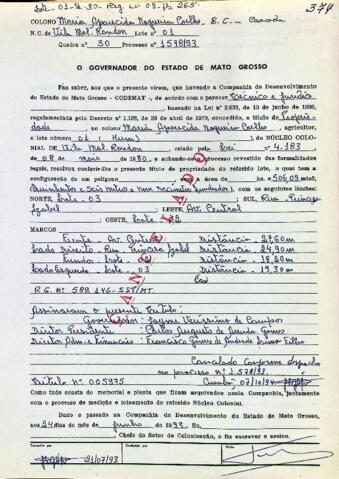 Lote - 01 - Q. 30 - Reg. Lv 09 fls. 265.
374
COLONO Maria Aparecida Nogueira Coelho, E. C. - Casada
N. C. de Vila Mal. Rondon Lote nº 01
Quadra nº 30 Processo nº 1578/93
O GOVERNADOR DO ESTADO DE MATO GROSSO
Faz saber, aos que a presente virem, que havendo a Companhia de Desenvolvimento
do Estado de Mato Grosso - CODEMAT -, de acordo com o parecer Técnico e Jurídico
baseado, na Lei nº 2.933, de 10 de junho de 1986,
regulamentada pelo Decreto nº 1.128, de 29 de abril de 1970, concedido, a título de Proprie-
dade, ao colono Maria Aparecida Nogueira Coelho, agricultor,
o lote nº 01 (Hum) DO NÚCLEO COLONI-
AL DE Vila Mal. Rondon criado pela Lei nº 4.183
de 08 de maio de 1980, e achando-se o processo revestido das formalidades
legais, resolveu conferir-lhe o presente título de propriedade do referido lote, o qual tem a
configuração de um polígono e área de ha 506,09 mts²
(Quinhentos e Seis metros e nove decímetros quadrados), com os seguintes limites:
NORTE, Lote - 03 SUL, Rua Princesa
Izabel LESTE, Av. Central
OESTE, Lote - 02
MARCOS
Frente - Av. Central Distância - 27,60m
Lado Direito - Rua Princesa Izabel Distância - 24,90m
Fundos - Lote - 02 Distância - 18,20m
Lado Esquerdo - Lote - 03 Distância - 19,30m
R.G. Nº 589.146-SSP/MT
CANCELADO
Assinaram o presente Título:
Governador: Jayme Veríssimo de Campos
Diretor Presidente: Carlos Augusto de Arruda Gomes
Diretor Adm. e Financeiro: Francisco Gomes de Andrade Lima Filho
Cancelado conforme despacho
no processo nº 1.578/93.
Título Nº 005975 Cuiabá, 07/10/94
Como tudo consta do memorial e planta que ficam arquivados nesta Companhia, juntamente
com o processo de medição e loteamento do referido Núcleo Colonial.
Dado e passado na Companhia de Desenvolvimento do Estado de Mato Grosso,
aos 24 dias do mês de junho de 1993 Eu,
Chefe do Setor da Colonização, o fiz escrever e assino.
21/07/93